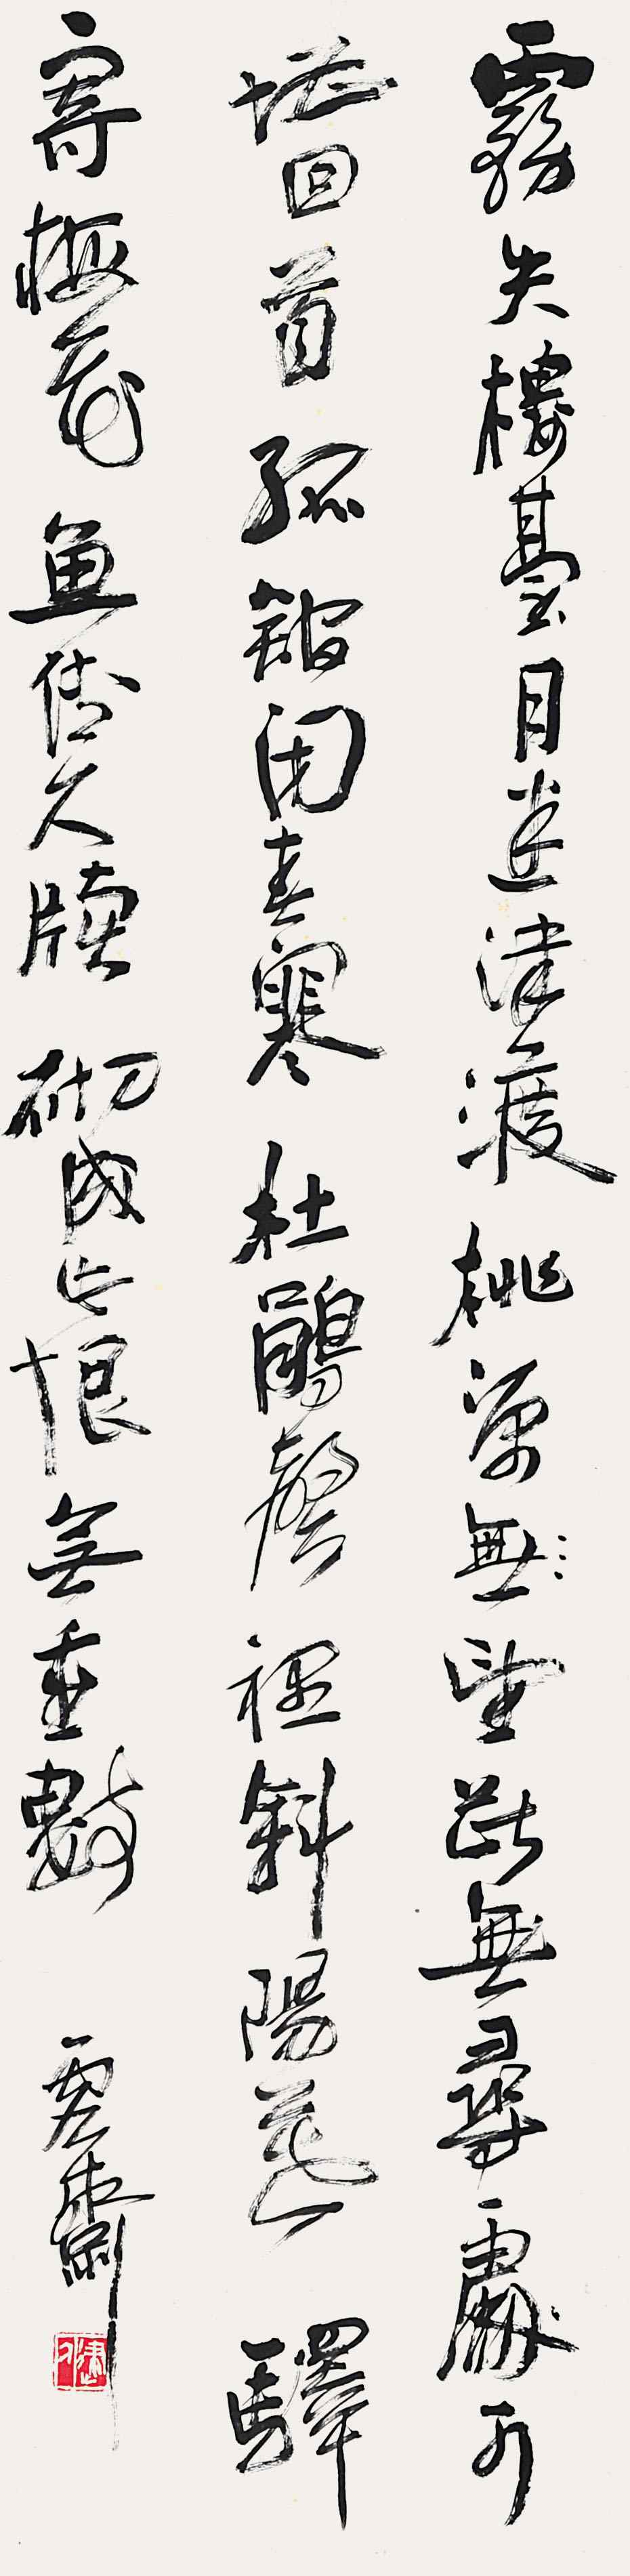 霧失樓臺月迷津渡桃源無望斷無尋處可
堪回首孤館閉春寒杜鵑聲裡斜陽暮驛
寄梅花魚傳尺牘砌成此恨無重數